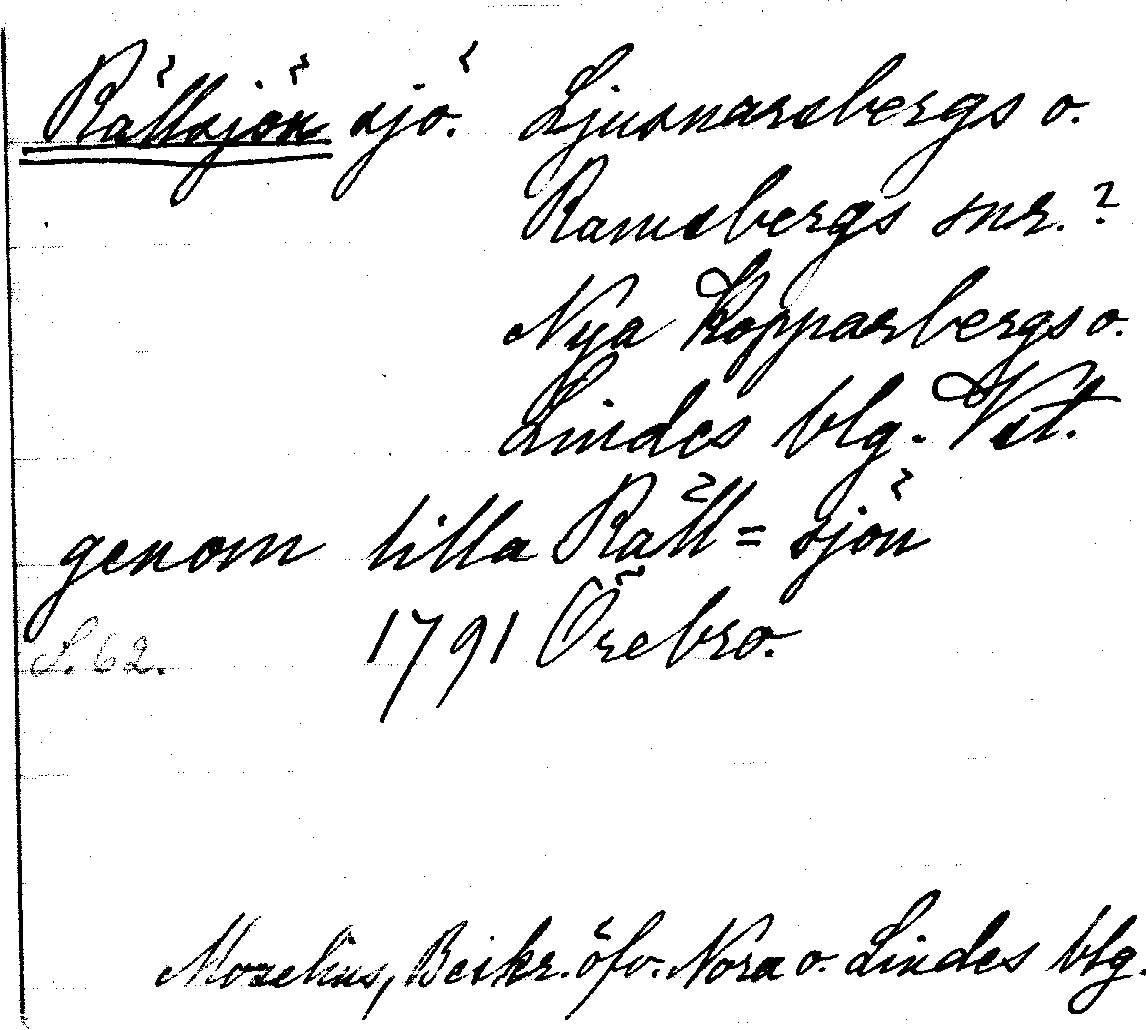 Rällsjön sjö. Ljusnarsbergs o.
Ramsbergs snr.?
Nya Kopparbergs o.
Lindes blg. Vst.
genom lilla Räll=sjön
S. 62. 1791 Örebro.
Mozelius, Beskr. öfv. Nora o. Lindes blg.